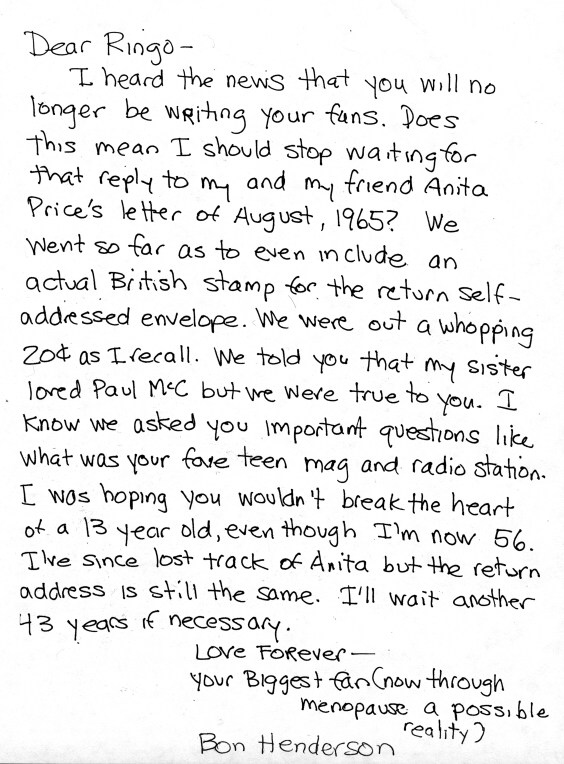 Dear Ringo-
I heard the news that you will no
longer be writing your fans. Does
this mean I should stop waiting for
that reply to my and my friend Anita
Price's letter of August, 1965? We
went so far as to even include an
actual British stamp for the return self-
addressed envelope. We were out a whopping
20¢ as I recall. We told you that my sister
loved Paul McC but we were true to you. I
know we asked you important questions like
what was your fave teen mag and radio station.
I was hoping you wouldn't break the heart
of a 13 year old, even though I'm now 56.
I've since lost track of Anita but the return
address is still the same. I'll wait another
43 years if necessary.
Love Forever—
your Biggest fan (now through
menopause a possible
reality)
Bon Henderson